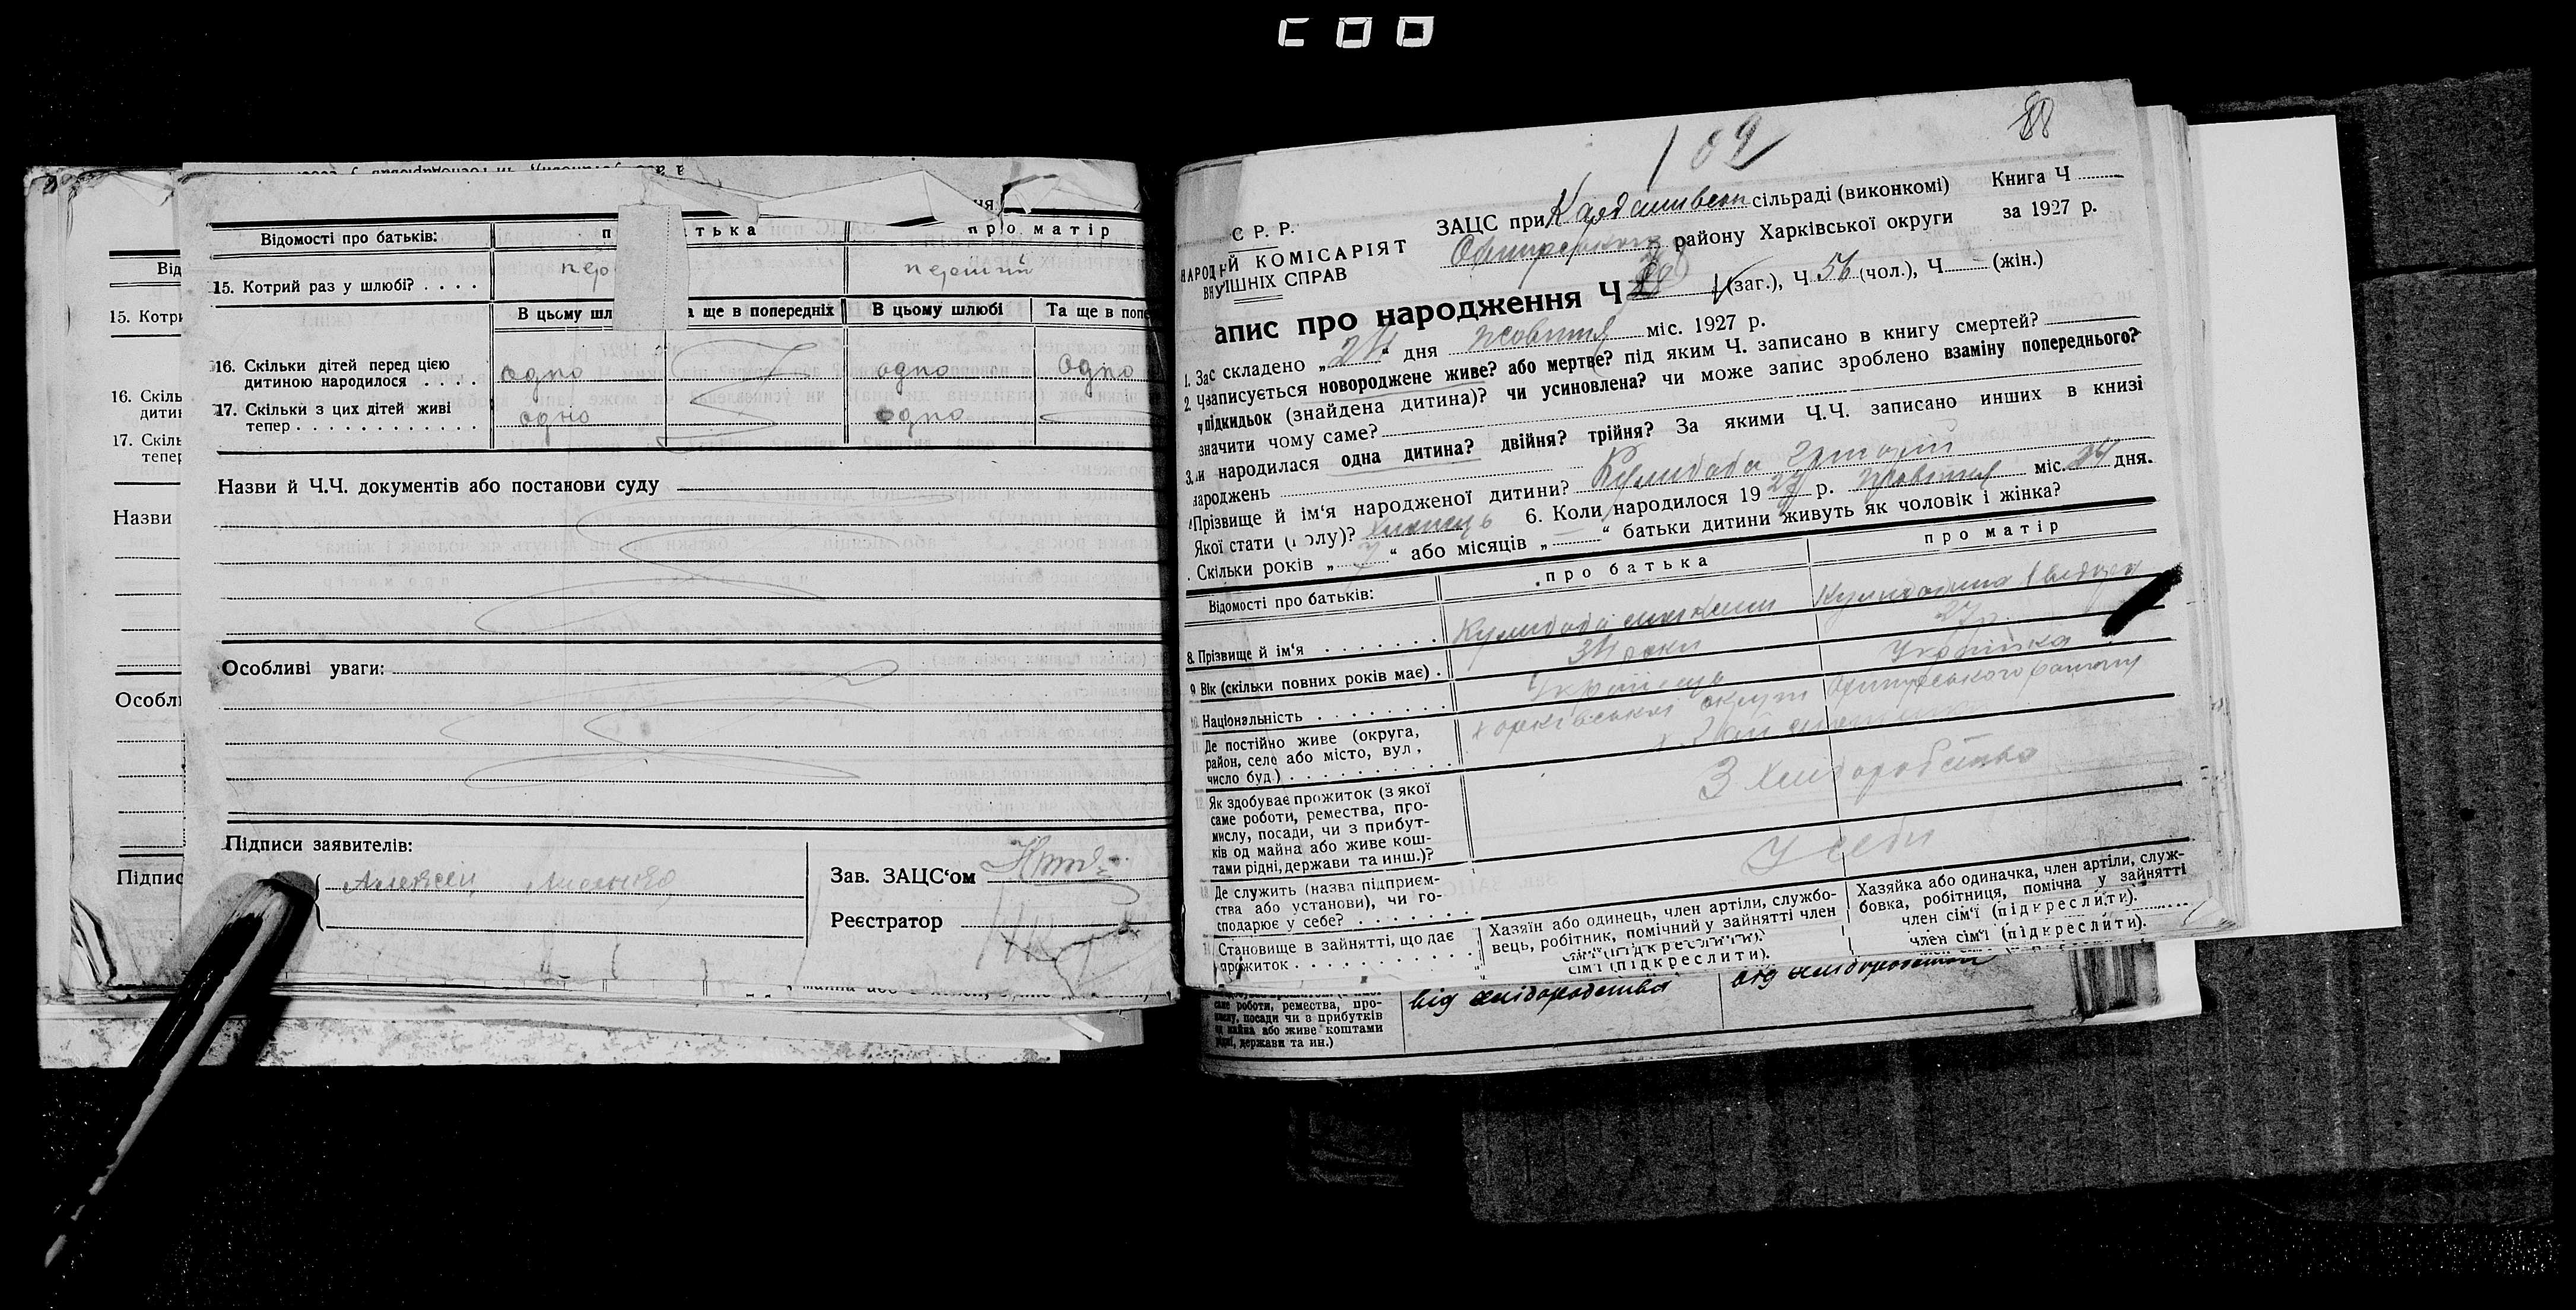 Відомості про батьків:
про матір
15. Котрий раз у шлюбі? . . . .
перший
В цьому шл
а ще в попередніх
В цьому шлюбі
Та ще в попе
16. Скільки дітей перед цією
дитиною народилося . . . .
одно
одно
Одно
17. Скільки з цих дітей живі
тепер . . . . . . . . . . . .
одно
одно
Назви й Ч.Ч. документів або постанови суду
Особливі уваги:
Підписи заявителів:
Алексей
Зав. ЗАЦС'ом
Реєстратор
Від
15. Котри
16. Скіль
дитин
17. Скіль
тепер
Назви
Особли
Підпис
109
88
С Р. Р.
НАРОДНІЙ КОМІСАРІЯТ
ВНУ ІШНІХ СПРАВ
ЗАЦС при сільраді (виконкомі)
Книга Ч
району Харківської округи
за 1927 р.
апис про народження Ч (заг.), Ч 56 (чол.), Ч (жін.)
1. Зас складено „24“ дня жовтня міс. 1927 р.
2. Ч записується новороджене живе? або мертве? під яким Ч. записано в книгу смертей?
підкидьок (знайдена дитина)? чи усиновлена? чи може запис зроблено взаміну попереднього?
значити чому саме?
3. и народилася одна дитина? двійня? трійня? За якими Ч.Ч. записано инших в книзі
народжень
Прізвище й ім'я народженої дитини?
Якої стати (полу)? хлопець 6. Коли народилося 1927 р. жовтня міс. 24 дня.
Скільки років „7“ або місяців „ “ батьки дитини живуть як чоловік і жінка?
Відомості про батьків:
про батька
про матір
8. Прізвище й ім'я . . . . . .
9 Вік (скільки повних років має) .
34 роки
27 р.
10. Національність . . . . . . . .
Українець
Українка
11. Де постійно живе (округа,
район, село або місто, вул.,
число буд) . . . . . . . . . .
Харківської округи
12. Як здобуває прожиток (з якої
саме роботи, ремества, про-
мислу, посади, чи з прибут-
ків од майна або живе кош-
тами рідні, держави та инш.)?
З хліборобства
13. Де служить (назва підприєм-
ства або установи), чи го-
сподарює у себе? . . . . . . .
У себе
14. Становище в зайнятті, що дає
прожиток . . . . . . . . . . .
Хазяїн або одинець, член артіли, службо-
вець, робітник, помічний у зайнятті член
сім'ї (підкреслити).
сім'ї (підкреслити).
Хазяйка або одиначка, член артіли, служ-
бовка, робітниця, помічна у зайнятті
член сім'ї (підкреслити).
член сім'ї (підкреслити).
саме роботи, ремества, про-
мислу, посади чи з прибутків
од майна або живе коштами
рідні, держави та ин.)
від хліборобства
від хліборобства